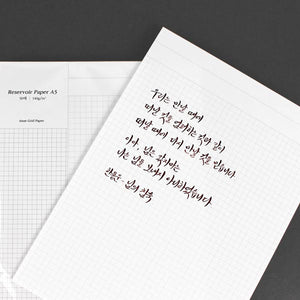 Reservoir Paper A5
5mm Grid Paper
우리는 만날 때에
떠날 것을 염려하는 것과 같이
떠날 때에 다시 만날 것을 믿습니다.
아아, 님은 갔지마는
나는 님을 보내지 아니하였습니다.
한용운 - 님의 침묵